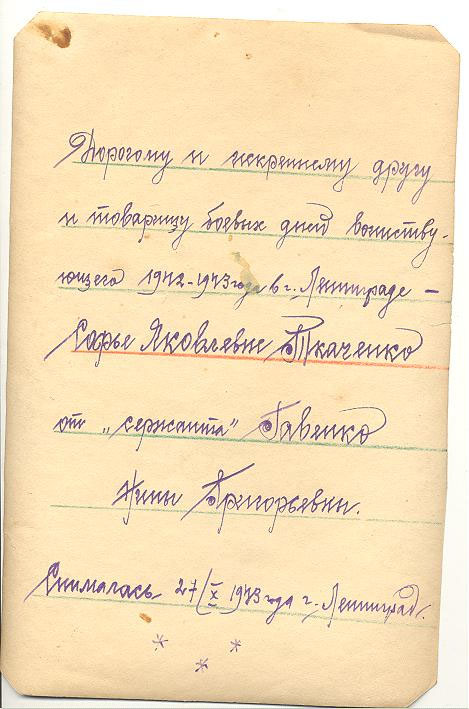 Дорогому и искреннему другу
и товарищу боевых дней воинству-
ющего 1942-1943 года в г. Ленинграде –
Сарье Яковлевне Ткаченко
от „сержанта" Гавенко
Нины Григорьевны.
Снималась 27/X 1943 года г. Ленинград.